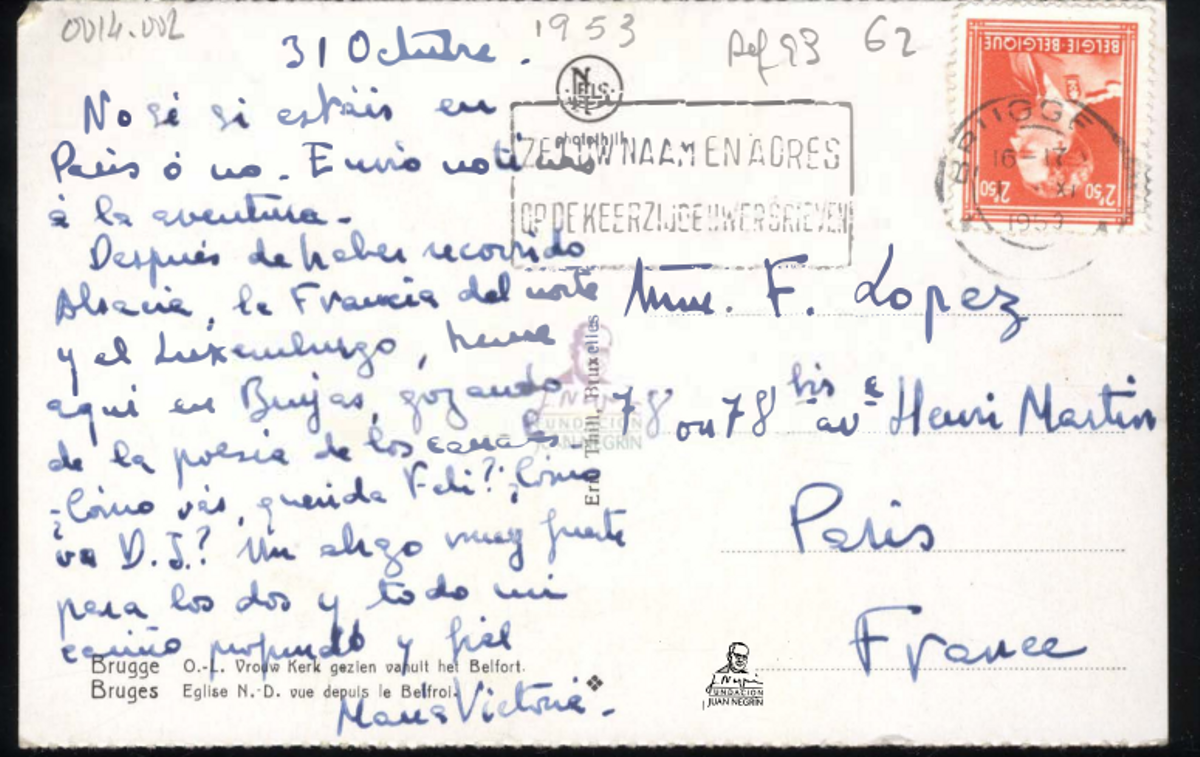 0014.002
1953
Ref 93
62
31 Octubre.
No sé si estáis en
París ó no. Envío
á la aventura.
Después de haber recorrido
Alsacia, la Francia del norte
y el Luxemburgo, heme
aquí en Brujas, gozando
de la poesía de los canales.
¿Cómo vás, querida Feli? ¿Cómo
va D. J.? Un abrazo muy fuerte
para los dos y todo mi
cariño profundo y fiel
María Victoria.
NELS
photothill
ZET UW NAAM EN ADRES
OP DE KEERZIJDE UWER BRIEVEN
BELGIE-BELGIQUE
2F50 2F50
BRUGGE
16-17
XI
1953
Mme. F. Lopez
78 ou 78 bis av e Henri Martin
Paris
France
Ern. Thill, Bruxelles
J. Negrín
FUNDACION
JUAN NEGRIN
Brugge O.-L. Vrouw Kerk gezien vanuit het Belfort.
Bruges Eglise N.-D. vue depuis le Belfroi.
J. Negrín
FUNDACION
JUAN NEGRIN